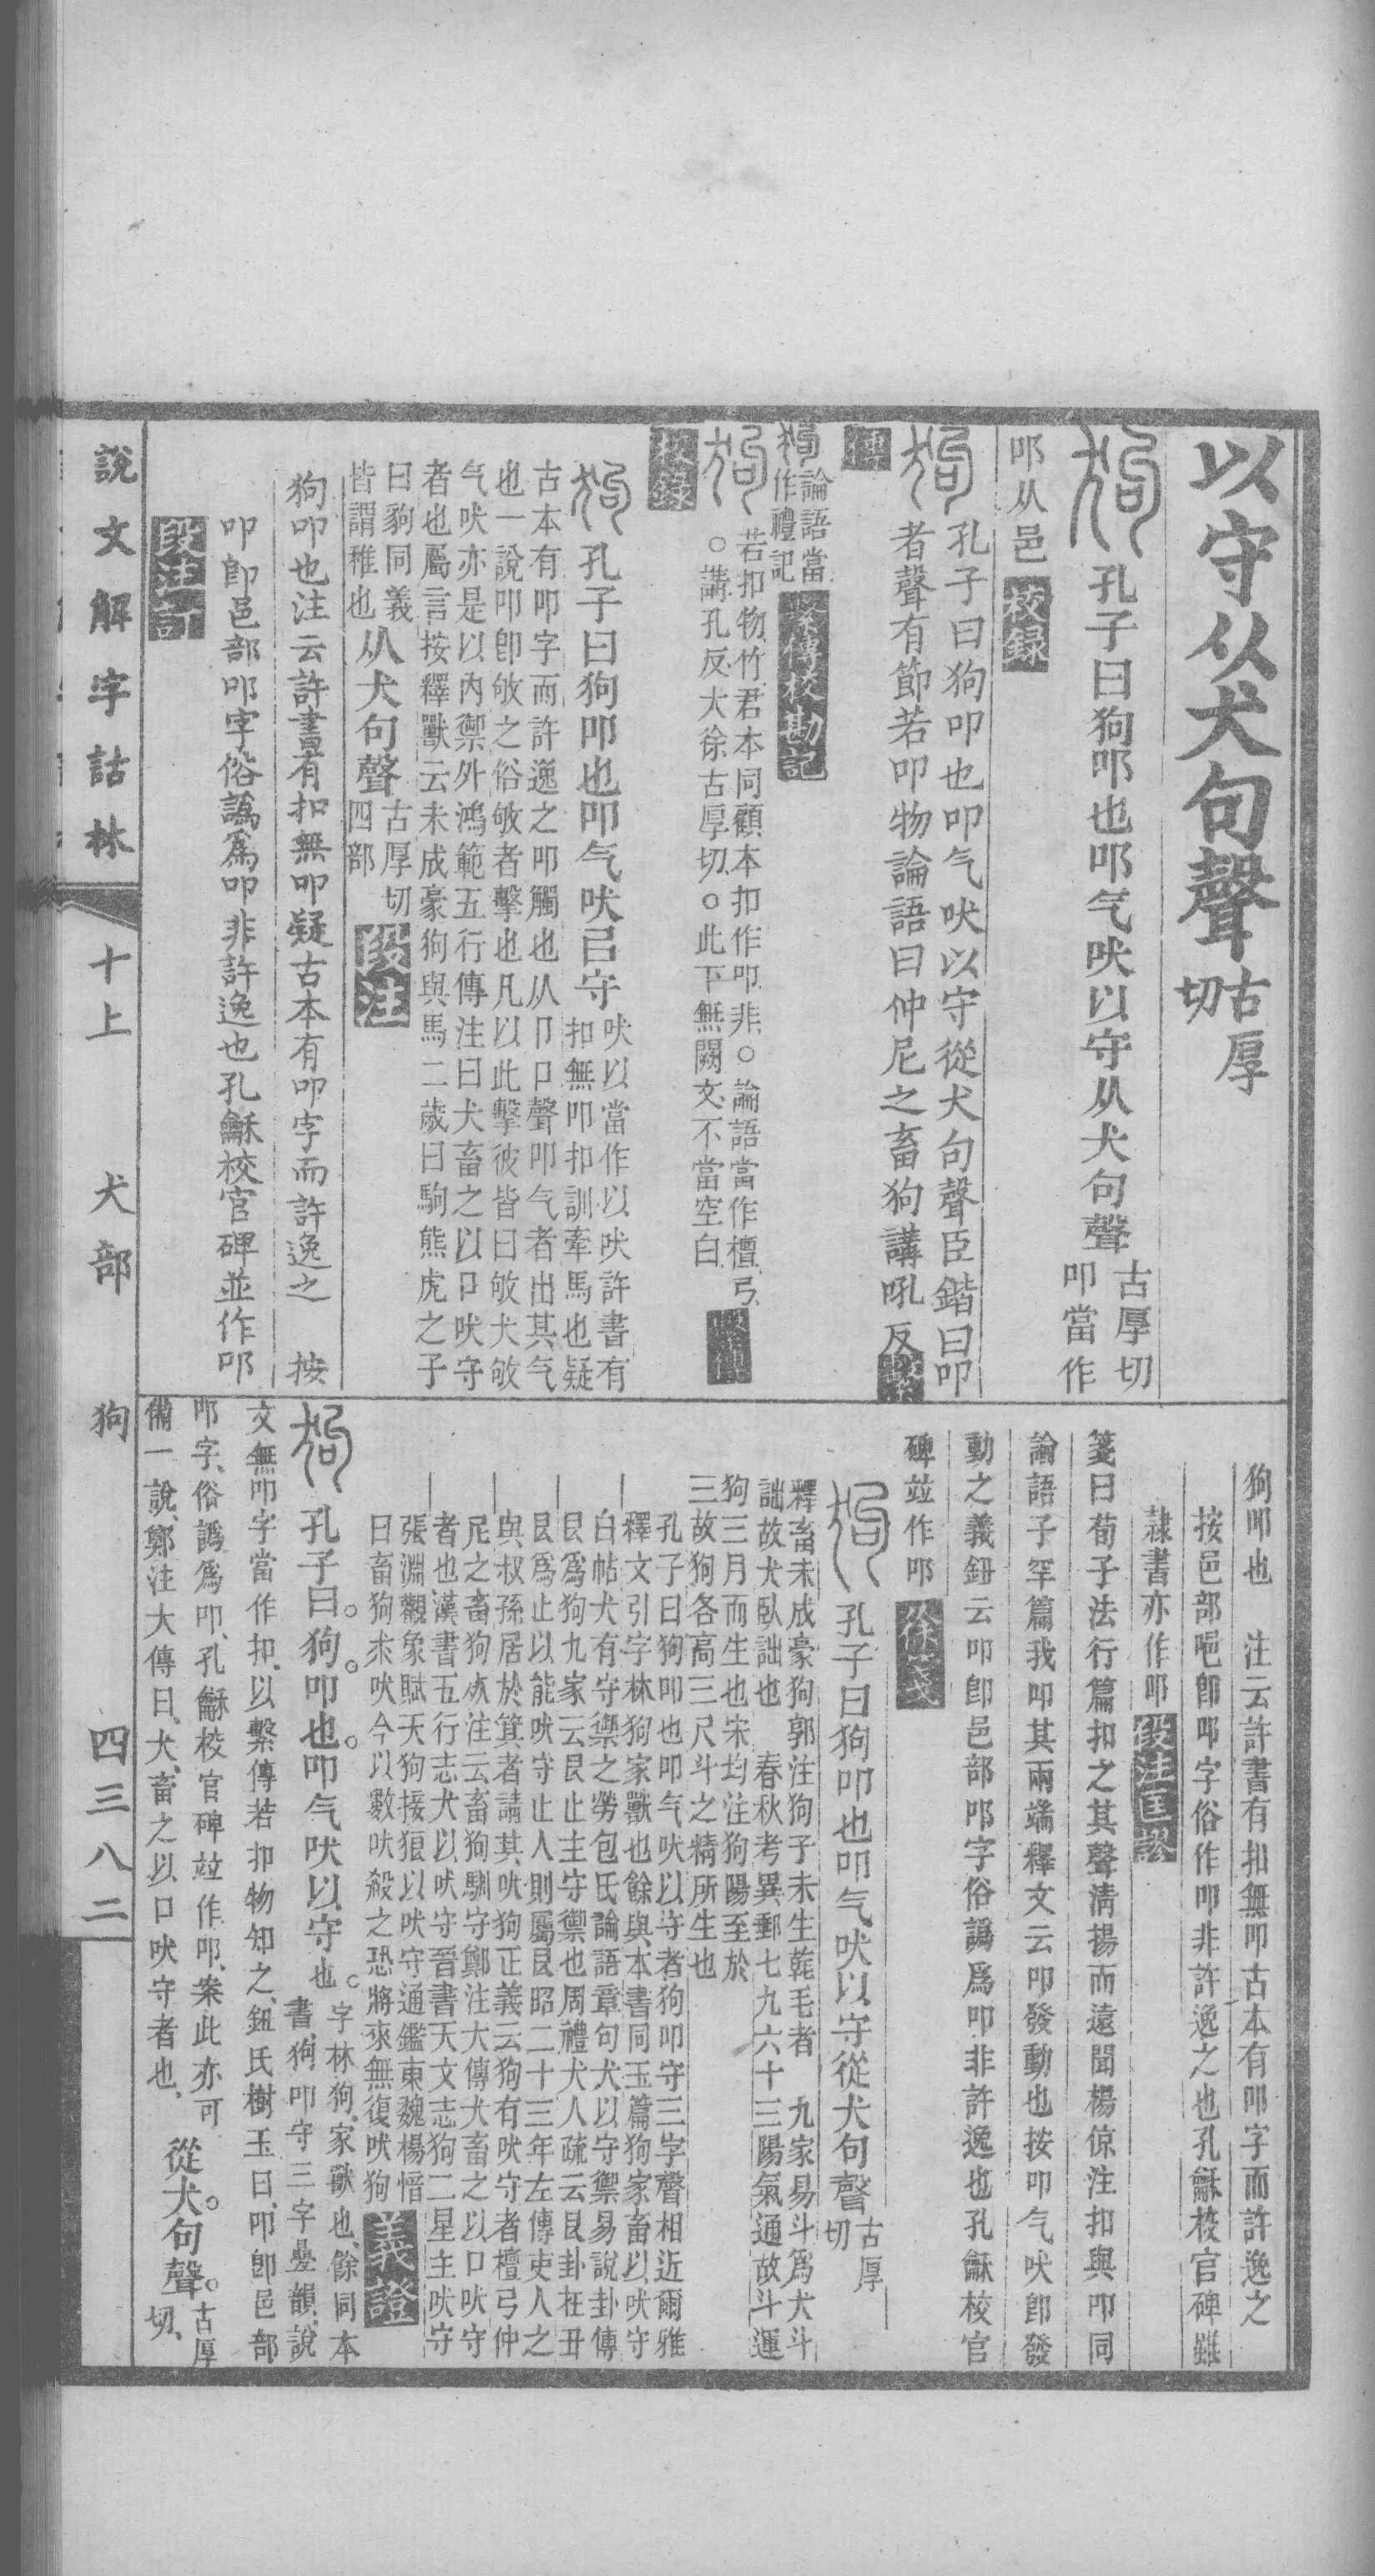 以守从犬句聲古厚切
孔子曰狗叩也叩气吠以守从犬句聲古厚切叩當作
叩从邑校錄
孔子曰狗叩也叩气吠以守從犬句聲臣鍇曰叩
者聲有節若叩物論語曰仲尼之畜狗講吼反
論語當作禮記繫傳校勘記
若扣物竹君本同顧本扣作叩非○論語當作檀弓
○講孔反大徐古厚切○此下無闕文不當空白
校錄
孔子曰狗叩也叩气吠㠯守吠以當作以吠許書有
扣無叩扣訓牽馬也疑
古本有叩字而許逸之叩觸也从卩口聲叩气者出其气
也一說叩卽敂之俗敂者擊也凡以此擊彼皆曰敂犬敂
气吠亦是以內禦外鴻範五行傳注曰犬畜之以口吠守
者也屬言按釋獸云未成豪狗與馬二歲曰駒熊虎之子
曰豿同義
皆謂稚也从犬句聲古厚切四部段注
狗叩也注云許書有扣無叩疑古本有叩字而許逸之　按
叩卽邑部叩字俗譌爲叩非許逸也孔龢校官碑並作叩
段注訂
狗叩也　注云許書有扣無叩古本有叩字而許逸之
按邑部卽叩字俗作叩非許逸之也孔龢校官碑雖
隸書亦作叩段注匡謬
箋曰荀子法行篇扣之其聲淸揚而遠聞楊倞注扣與叩同
論語子罕篇我叩其兩端釋文云叩發動也按叩气吠卽發
動之義鈕云叩卽邑部叩字俗譌爲叩非許逸也孔龢校官
碑竝作叩徐箋
孔子曰狗叩也叩气吠以守從犬句聲古厚切
釋畜未成豪狗郭注狗子未生㲦毛者　九家易斗爲犬斗
詘故犬臥詘也　春秋考異郵七九六十三陽氣通故斗運
狗三月而生也宋均注狗陽至於
三故狗各高三尺斗之精所生也
孔子曰狗叩也叩气吠以守者狗叩守三字聲相近爾雅
釋文引字林狗家獸也餘與本書同玉篇狗家畜以吠守
白帖犬有守禦之勞包氏論語章句犬以守禦易說卦傳
艮爲狗九家云艮止主守禦也周禮犬人疏云艮卦在丑
艮爲止以能吠守止人則屬艮昭二十三年左傳吏人之
與叔孫居於箕者請其吠狗正義云狗有吠守者檀弓仲
尼之畜狗𣦸注云畜狗馴守鄭注大傳犬畜之以口吠守
者也漢書五行志犬以吠守晉書天文志狗二星主吠守
張淵觀象賦天狗接狼以吠守通鑑東魏楊愔
曰畜狗求吠今以數吠殺之恐將來無復吠狗義證
孔子曰。狗。叩也。叩气吠以守也。字林狗、家獸也、餘同本
書、狗叩守三字疊韻、說
文無叩字當作扣、以繫傳若扣物知之、鈕氏樹玉曰、叩卽邑部
叩字、俗譌爲叩、孔龢校官碑竝作叩、案此亦可
備一說、鄭注大傳曰、犬、畜之以口吠守者也、從犬。句聲。古厚切、
說文解字詁林　十上　犬部　狗　四三八二